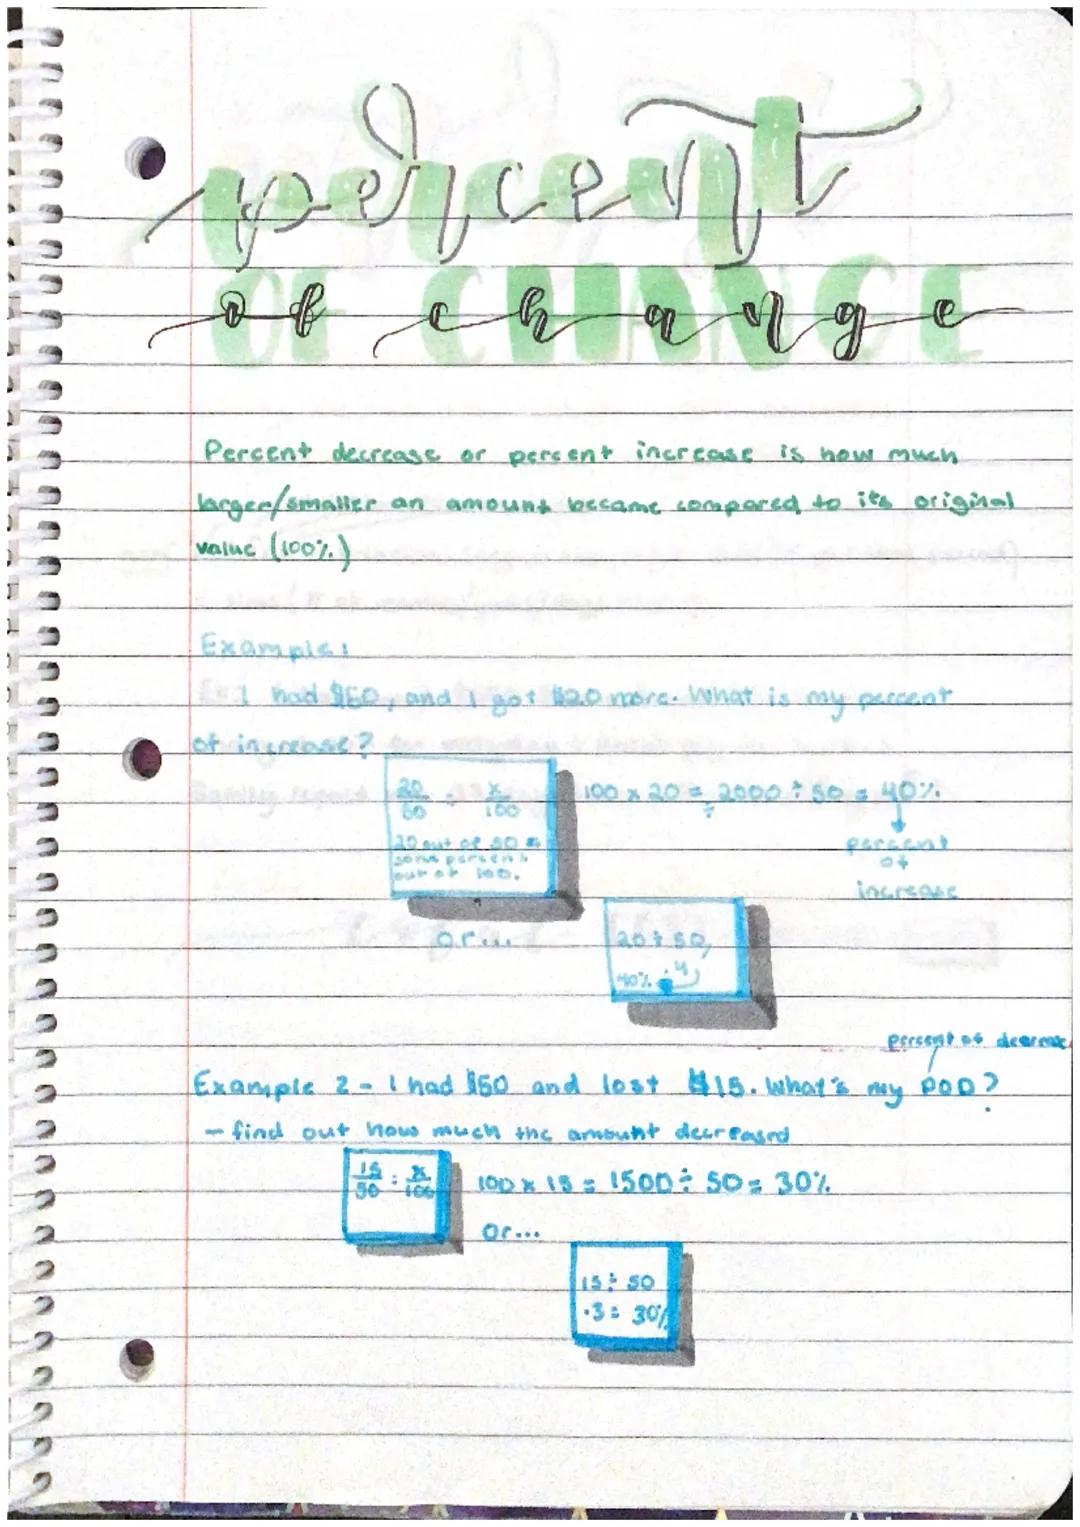 percent
OF CHANGE
of change
Percent decrease or percent increase is how much
larger/smaller an amount became compared to its original
value (100%)
Example:
I had $50, and I got $20 more. What is my percent
of increase?
20/50 = x/100
20 out of 50 =
some percent
out of 100.
100 x 20 = 2000 ÷ 50 = 40%
percent
of
increase
or...
20 ÷ 50,
40% .4
percent of decrease
Example 2 - I had $50 and lost $15. What's my POD?
- find out how much the amount decreased
15/50 = x/100
100 x 15 = 1500 ÷ 50 = 30%
or...
15 ÷ 50
.3 = 30%